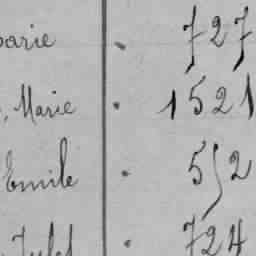 parie . 727
, Marie . 1521
Emile . 552
Jules . 724